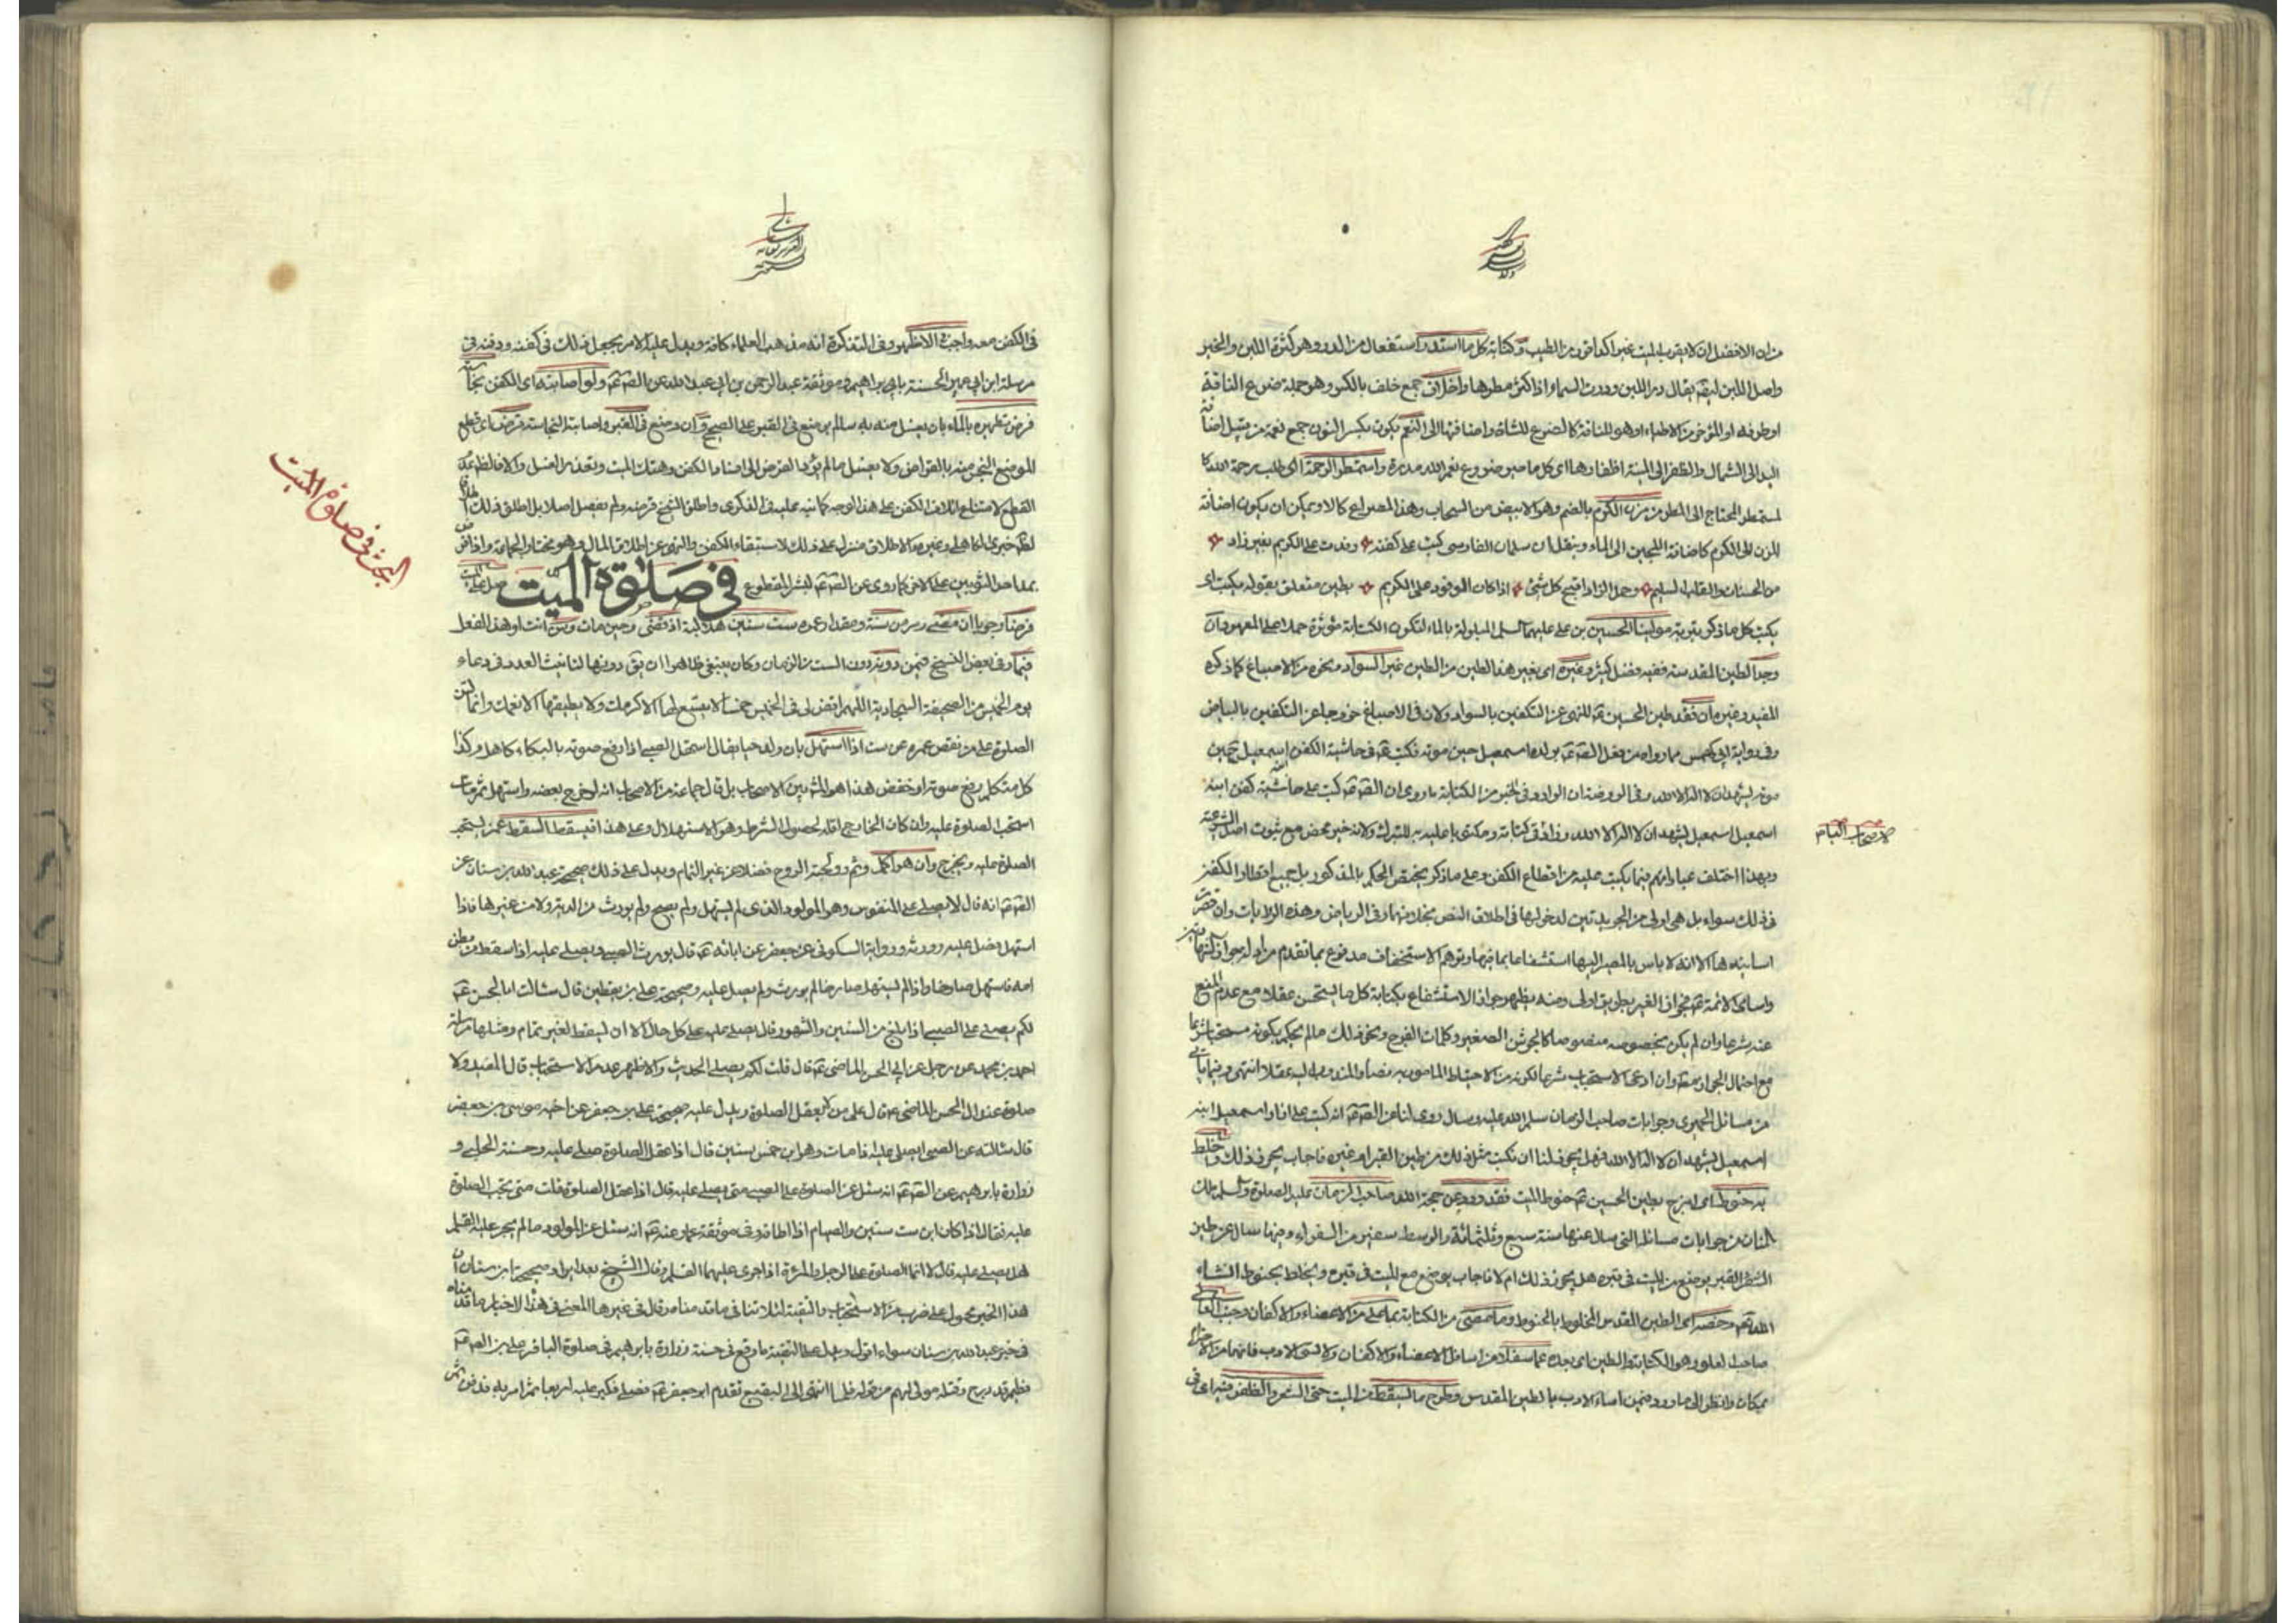 من ان الافضل ان لا يقرب الميت غير الكافور من الطيب وكتابة كل ما استدر استفعال من الدر وهو كثرة اللبن والخير
واصل اللبن يقال در اللبن ودرت السماء اذا كثر مطرها واخلاف جمع خلف بالكسر وهو حلمة ضرع الناقة
او طرفه او المؤخر من الاطباء او هو للناقة كالضرع للشاة واضافتها الى النعم بكسر النون جمع نعمة من قبيل اضافة
اليد الى الشمال والظفر الى المنية اظفارها اي كل ما صير ضروع نعم الله مدرة واستمطر الرحمة اي طلب رحمة الله
لمستمطر المحتاج الى المطر من مزن الكرم بالضم وهو الابيض من السحاب وهذا المصراع كالاول ويمكن ان يكون اضافة
المزن الى الكرم كاضافة اللجين الى الماء وينقل ان سلمان الفارسي كتب على كفنه وفدت على الكريم بغير زاد
من الحسنات والقلب السليم وحمل الزاد اقبح كل شئ اذا كان الوفود على الكريم بطين متعلق بقوله يكتب اي
يكتب كل ما ذكر بتربة مولينا الحسين بن علي عليهما السلم المبلولة بالماء لتكون الكتابة مؤثرة حملا على المعهود وان
وجد الطين المقدسة ففيه فضل كثير وغيره اي بغير هذا الطين من الطين غير السواد ونحوه من الاصباغ كما ذكره
المفيد وغيره ان فقد طين الحسين عم للنهي عن التكفين بالسواد ولان في الاصباغ خروجا عن التكفين بالبياض
وفي رواية ابي كهمس ما رواه من فعل الصم عم بولده اسمعيل حين موته فكتب عم في حاشية الكفن اسمعيل
يشهد ان لا اله الا الله وفي الروضة ان الوارد في الخبر من الكتابة ما روي ان الصم عم كتب على حاشية كفن ابنه
اسمعيل اسمعيل يشهد ان لا اله الا الله وزاد في كتابة ومكتوبا عليه للتبرك ولانه خير محض مع ثبوت اصل الشرعية
لاصحاب
وبهذا اختلف عباراتهم فيما يكتب عليه من اقطاع الكفن وعلى ما ذكر يختص الحكم بالمذكور بل جميع اقطار الكفن
في ذلك سواء بل هي اولى من الجريدتين لدخولها في اطلاق النص بخلافهما وفي الرياض وهذه الروايات وان قصرت
اسانيدها الا انه لا باس بالمصير اليها استشفاعا بما فيها وتوهم الاستخفاف مدفوع بما تقدم
واسامي الائمة عم فجواز الغير بطريق اولى ومنه يظهر جواز الاستشفاع بكتابة كل ما يستحسن عقلا مع عدم المنع
عنه شرعا وان لم يكن بخصوصه منصوصا كالجوشن الصغير وكلمات الفرج ونحو ذلك ما لم يحكم بكونه مستحبا شرعا
مع احتمال الجواز معه وان ادعى الاستحباب شرعا لكونه من الاحتياط المامور به نصا والمندوب اليه عقلا انتهى
من مسائل الحميري وجوابات صاحب الزمان سلم الله عليه وسال روي لنا عن الصم عم انه كتب على ازار اسمعيل ابنه
اسمعيل يشهد ان لا اله الا الله فهل يجوز لنا ان نكتب مثل ذلك من طين القبر او غيره فاجاب يجوز ذلك وخلط
به حنوط اي امزج بطين الحسين عم حنوط الميت فقد ورد عن حجة الله صاحب الزمان عليه الصلوة والسلم
المنان من جوابات مسائله التي سال عنها سنة سبع وثلثمائة والوسط سفير من السفراء ومنها سال عن طين
القبر يوضع مع الميت في قبره هل يجوز ذلك ام لا فاجاب يوضع مع الميت في قبره ويخلط بحنوطه انشاء
الله تعم وخصه اي الطين المقدس المخلوط بالحنوط وما مضى من الكتابة بما على من الاعضاء والاكفان وجنب
صاحب العلو وهو الكتابة والطين اي بعده عما سفلا من اسافل الاعضاء والاكفان ولا تسئ الادب فانهما
بمكان وانظر الى ما ورد فيمن اساء الادب بالطين المقدس وطرح ما يسقط من الميت حتى الشعر والظفر فيه اعني
في الكفن معه واجب في الاظهر وفي التذكرة انه مذهب العلماء كافة ويدل عليه الامر بجعل ذلك في كفنه ودفنه في
مرسلة ابن ابي عمير الحسنة بابراهيم وموثقة عبد الرحمن بن ابي عبد الله عن الصم عم ولو اصابته اي الكفن نجاسة
فرض تطهيره بالماء بان يغسل منه به سالم يوضع في القبر على الصحيح وان وضع في القبر واصابته النجاسة قرضت اي قطع
الموضع النجس منه بالمقراض ولا يغسل ما لم يؤد القرض الى افساد الكفن وهتك الميت وتعذر الغسل والا فالظاهر
القطع لامتناع اتلاف الكفن على هذا الوجه كما نبه عليه في الذكرى واطلق الشيخ قرضه ولم يفصل اصلا بل اطلق ذلك
لظ خبري الكاهلي وغيره والاطلاق منزل على ذلك لاستبقاء الكفن والنهي عن اتلاف المال وهو مختار الجماعة
كما روي عن الصم عم لبشر المقطوع
في صلوة الميت
صل على الميت
البحث في صلوة الميت
فرضا وجوبا ان مضى من سنه ومقدار عمره ست سنين هلالية اذ قضى وحين مات
فيما وفي بعض النسخ فيمن دونه دون الست من الزمان وكان ينبغي ظاهرا ان يق دونها لتانيث العدد في دعاء
يوم الخميس من الصحيفة السجادية اللهم اقض لي في الخميس خمسا لا يتسع لها الا كرمك ولا يطيقها الا نعمك وانما تسن
الصلوة على من نقص عمره عن ست اذا استهل بان ولد حيا يقال استهل الصبي اذا رفع صوته بالبكاء كاهل وكذا
كل متكلم رفع صوته او خفض هذا هو المش بين الاصحاب بل قال جماعة من الاصحاب انه لو خرج بعضه واستهل ثم مات
استحب الصلوة عليه وان كان الخارج اقله لحصول الشرط وهو الاستهلال وعلى هذا فيسقط السقط عمن يستحب
الصلوة عليه ويخرج وان هو اكمل وتم وولجته الروح فضلا عن غير التمام ويدل على ذلك صحيحة عبد الله بن سنان عن
الصم عم انه قال لا يصلى على المنفوس وهو المولود الذي لم يستهل ولم يصح ولم يورث من الدية ولا من غيرها فاذا
استهل فصل عليه وورثه ورواية السكوني عن جعفر عن ابائه عم قال يورث الصبي ويصلى عليه اذا سقط من بطن
امه فاستهل صارخا واذا لم يستهل صارخا لم يورث ولم يصل عليه وصحيحة علي بن يقطين قال سالت ابا الحسن عم
لكم يصلى على الصبي اذا بلغ من السنين والشهور قال يصلى عليه على كل حال الا ان يسقط لغير تمام ومثلها مرسلة
احمد بن محمد عن رجل عن ابي الحسن الماضي عم قال قلت لكم يصلى الحديث والاظهر عدم الاستحباب قال المفيد ولا
صلوة عند ابي الحسن الماضي عم قال على من لم يعقل الصلوة ويدل عليه صحيحة علي بن جعفر عن اخيه موسى بن جعفر
قال سالته عن الصبي ايصلى عليه اذا مات وهو ابن خمس سنين قال اذا عقل الصلوة صلى عليه وحسنة الحلبي و
زرارة بابرهيم عن الصم عم انه سئل عن الصلوة على الصبي متى يصلى عليه قال اذا عقل الصلوة قلت متى يجب الصلوة
عليه فقال اذا كان ابن ست سنين والصيام اذا اطاقه وفي موثقة عمار عنه عم انه سئل عن المولود ما لم يجر عليه القلم
هل يصلى عليه قال لا انما الصلوة على الرجل والمرئة اذا جرى عليهما القلم وقال الشيخ بعد ايراد صحيحة ابن سنان ان
هذا الخبر محمول على ضرب من الاستحباب والتقية لئلا تنافي ما قدمناه وقال في غيرها المعنى في هذا الاخبار ما قدمناه
في خبر عبد الله بن سنان سواء اقول ويدل على التقية ما وقع في حسنة زرارة بابرهيم في صلوة الباقر على ابن الصم عم
فطيم قد درج وقتله مولى لهم من قوله فلما انتهى الى البقيع تقدم ابو جعفر عم فصلى فكبر عليه اربعا ثم امر به فدفن ثم